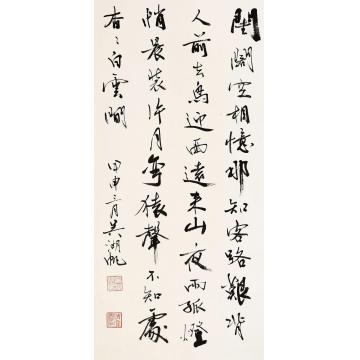 閨閣空相憶那知客路艱背
人前去鳥迎面遠來山夜雨孤燈
悄晨裝片月彎猿聲不知處
杳〻白雲間
甲申月吳湖帆